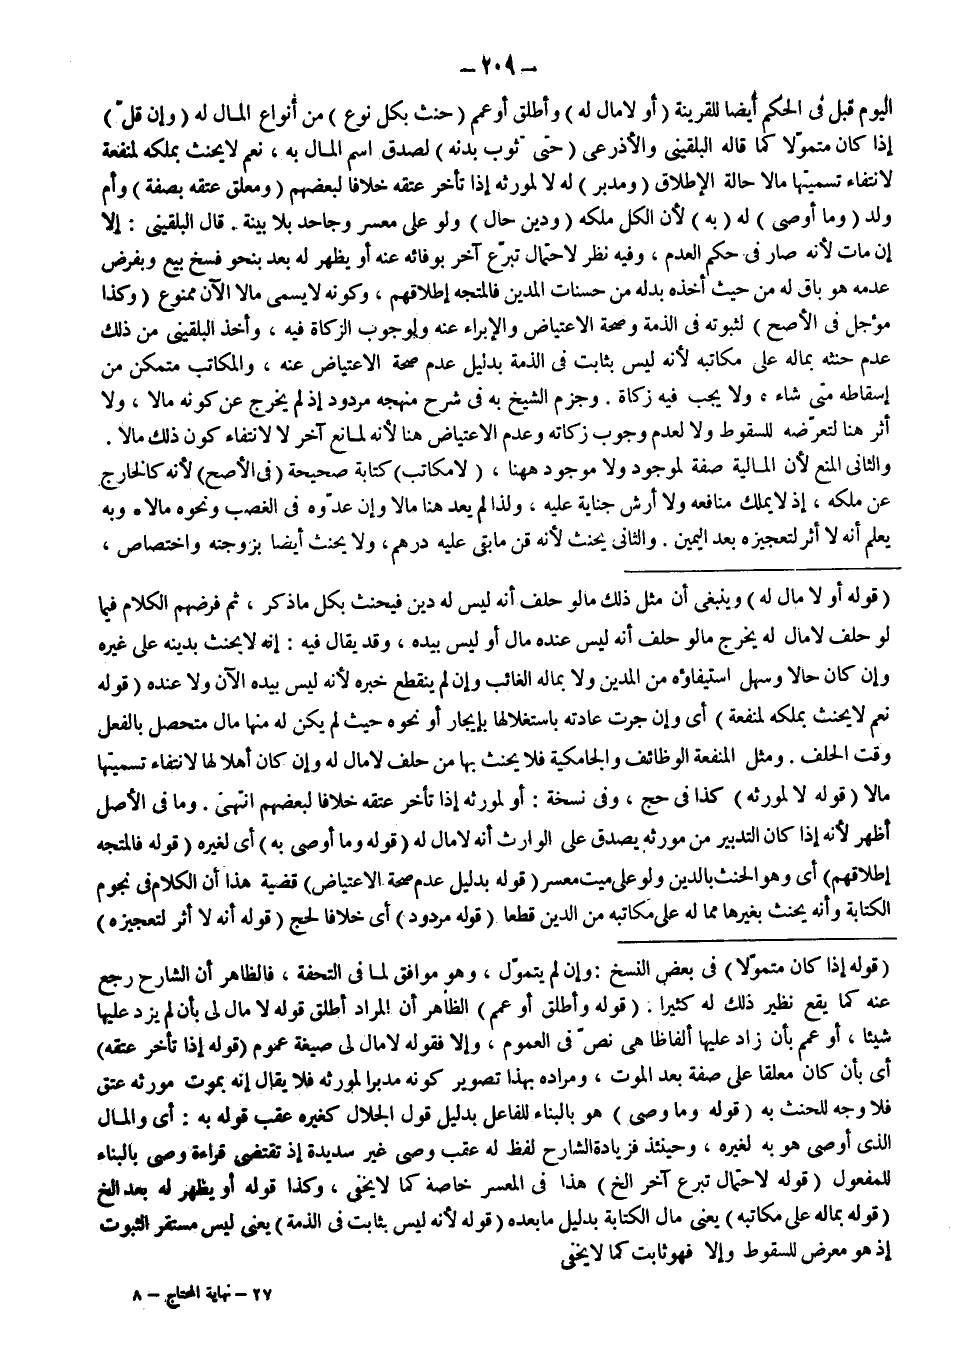 - ٢٠٩ -
اليوم قبل فى الحكم أيضا للقرينة ( أو لامال له ) وأطلق أوعم ( حنث بكل نوع ) من أنواع المال له ( وإن قلّ )
إذا كان متموّلا كما قاله البلقينى والأذرعى ( حتى ثوب بدنه ) لصدق اسم المال به ، نعم لايحنث بملكه لمنفعة
لانتفاء تسميتها مالا حالة الإطلاق ( ومدبر ) له لا لمورثه إذا تأخر عتقه خلافا لبعضهم ( ومعلق عتقه بصفة ) وأم
ولد ( وما أوصى ) له ( به ) لأن الكل ملكه ( ودين حال ) ولو على معسر وجاحد بلا بينة . قال البلقينى : إلا
إن مات لأنه صار فى حكم العدم ، وفيه نظر لاحتمال تبرّع آخر بوفائه عنه أو يظهر له بعد بنحو فسخ بيع وبفرض
عدمه هو باق له من حيث أخذه بدله من حسنات المدين فالمتجه إطلاقهم ، وكونه لايسمى مالا الآن ممنوع ( وكذا
مؤجل فى الأصح ) لثبوته فى الذمة وصحة الاعتياض والإبراء عنه ولوجوب الزكاة فيه ، وأخذ البلقينى من ذلك
عدم حنثه بماله على مكاتبه لأنه ليس بثابت فى الذمة بدليل عدم صحة الاعتياض عنه ، والمكاتب متمكن من
إسقاطه متى شاء ، ولا يجب فيه زكاة . وجزم الشيخ به فى شرح منهجه مردود إذ لم يخرج عن كونه مالا ، ولا
أثر هنا لتعرّضه للسقوط ولا لعدم وجوب زكاته وعدم الاعتياض هنا لأنه لمانع آخر لا لانتفاء كون ذلك مالا .
والثانى المنع لأن المالية صفة لموجود ولا موجود ههنا ، ( لامكاتب) كتابة صحيحة (فى الأصح) لأنه كالخارج
عن ملكه ، إذ لايملك منافعه ولا أرش جناية عليه ، ولذا لم يعد هنا مالا وإن عدّوه فى الغصب ونحوه مالا . وبه
يعلم أنه لا أثر لتعجيزه بعد اليمين . والثانى يحنث لأنه قن مابقى عليه درهم، ولا يحنث أيضا بزوجته واختصاص ،
( قوله أو لا مال له ) وينبغى أن مثل ذلك مالو حلف أنه ليس له دين فيحنث بكل ماذكر ، ثم فرضهم الكلام فيما
لو حلف لامال له يخرج مالو حلف أنه ليس عنده مال أو ليس بيده ، وقد يقال فيه : إنه لايحنث بدينه على غيره
وإن كان حالا وسهل استيفاؤه من المدين ولا بماله الغائب وإن لم ينقطع خبره لأنه ليس بيده الآن ولا عنده ( قوله
نعم لايحنث بملكه لمنفعة ) أى وإن جرت عادته باستغلالها بإيجار أو نحوه حيث لم يكن له منها مال متحصل بالفعل
وقت الحلف . ومثل المنفعة الوظائف والجامكية فلا يحنث بها من حلف لامال له وإن كان أهلا لها لانتفاء تسميتها
مالا ( قوله لا لمورثه ) كذا فى حج ، وفى نسخة : أو لمورثه إذا تأخر عتقه خلافا لبعضهم انتهى . وما فى الأصل
أظهر لأنه إذا كان التدبير من مورثه يصدق على الوارث أنه لامال له ( قوله وما أوصى به ) أى لغيره ( قوله فالمتجه
إطلاقهم) أى وهو الحنث بالدين ولو على ميت معسر ( قوله بدليل عدم صحة الاعتياض) قضية هذا أن الكلام فى نجوم
الكتابة وأنه يحنث بغيرها مما له على مكاتبه من الدين قطعا ( قوله مردود ) أى خلافا لحج ( قوله أنه لا أثر لتعجيزه )
( قوله إذا كان متموّلا ) فى بعض النسخ : وإن لم يتموّل ، وهو موافق لما فى التحفة ، فالظاهر أن الشارح رجع
عنه كما يقع نظير ذلك له كثيرا . ( قوله وأطلق أو عمم ) الظاهر أن المراد أطلق قوله لا مال لى بأن لم يزد عليها
شيئا ، أو عمم بأن زاد عليها ألفاظا هى نصّ فى العموم ، وإلا فقوله لامال لى صيغة عموم (قوله إذا تأخر عتقه)
أى بأن كان معلقا على صفة بعد الموت ، ومراده بهذا تصوير كونه مدبرا لمورثه فلا يقال إنه بموت مورثه عتق
فلا وجه للحنث به ( قوله وما وصى ) هو بالبناء للفاعل بدليل قول الجلال كغيره عقب قوله به : أى والمال
الذى أوصى هو به لغيره ، وحينئذ فزيادة الشارح لفظ له عقب وصى غير سديدة إذ تقتضى قراءة وصى بالبناء
للمفعول ( قوله لاحتمال تبرع آخر الخ ) هذا فى المعسر خاصة كما لايخفى ، وكذا قوله أو يظهر له بعد الخ
( قوله بماله على مكاتبه ) يعنى مال الكتابة بدليل مابعده ( قوله لأنه ليس بثابت فى الذمة ) يعنى ليس مستقر الثبوت
إذ هو معرض للسقوط وإلا فهو ثابت كما لايخفى
٢٧ - نهاية المحتاج - ٨